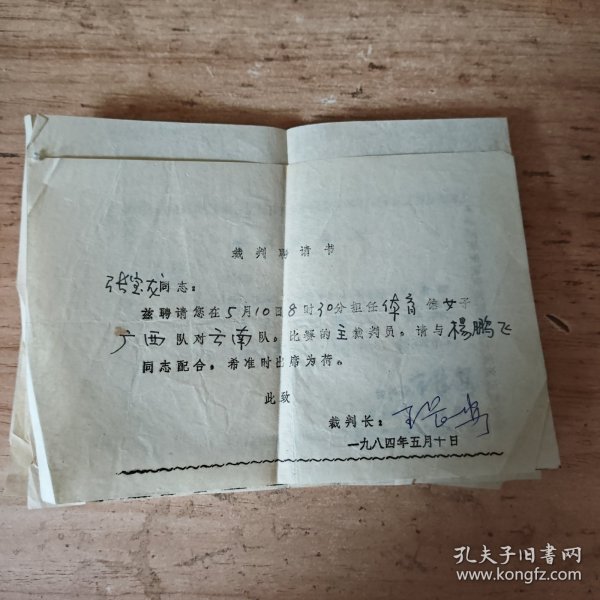 裁判聘请书
张宝成同志：
兹聘请您在5月10日8时30分担任体育馆女子
广西队对云南队。比赛的主裁判员。请与楊鹏飞
同志配合，希准时出席为荷。
此致
裁判长：
一九八四年五月十日
孔夫子旧书网
www.kongfz.com